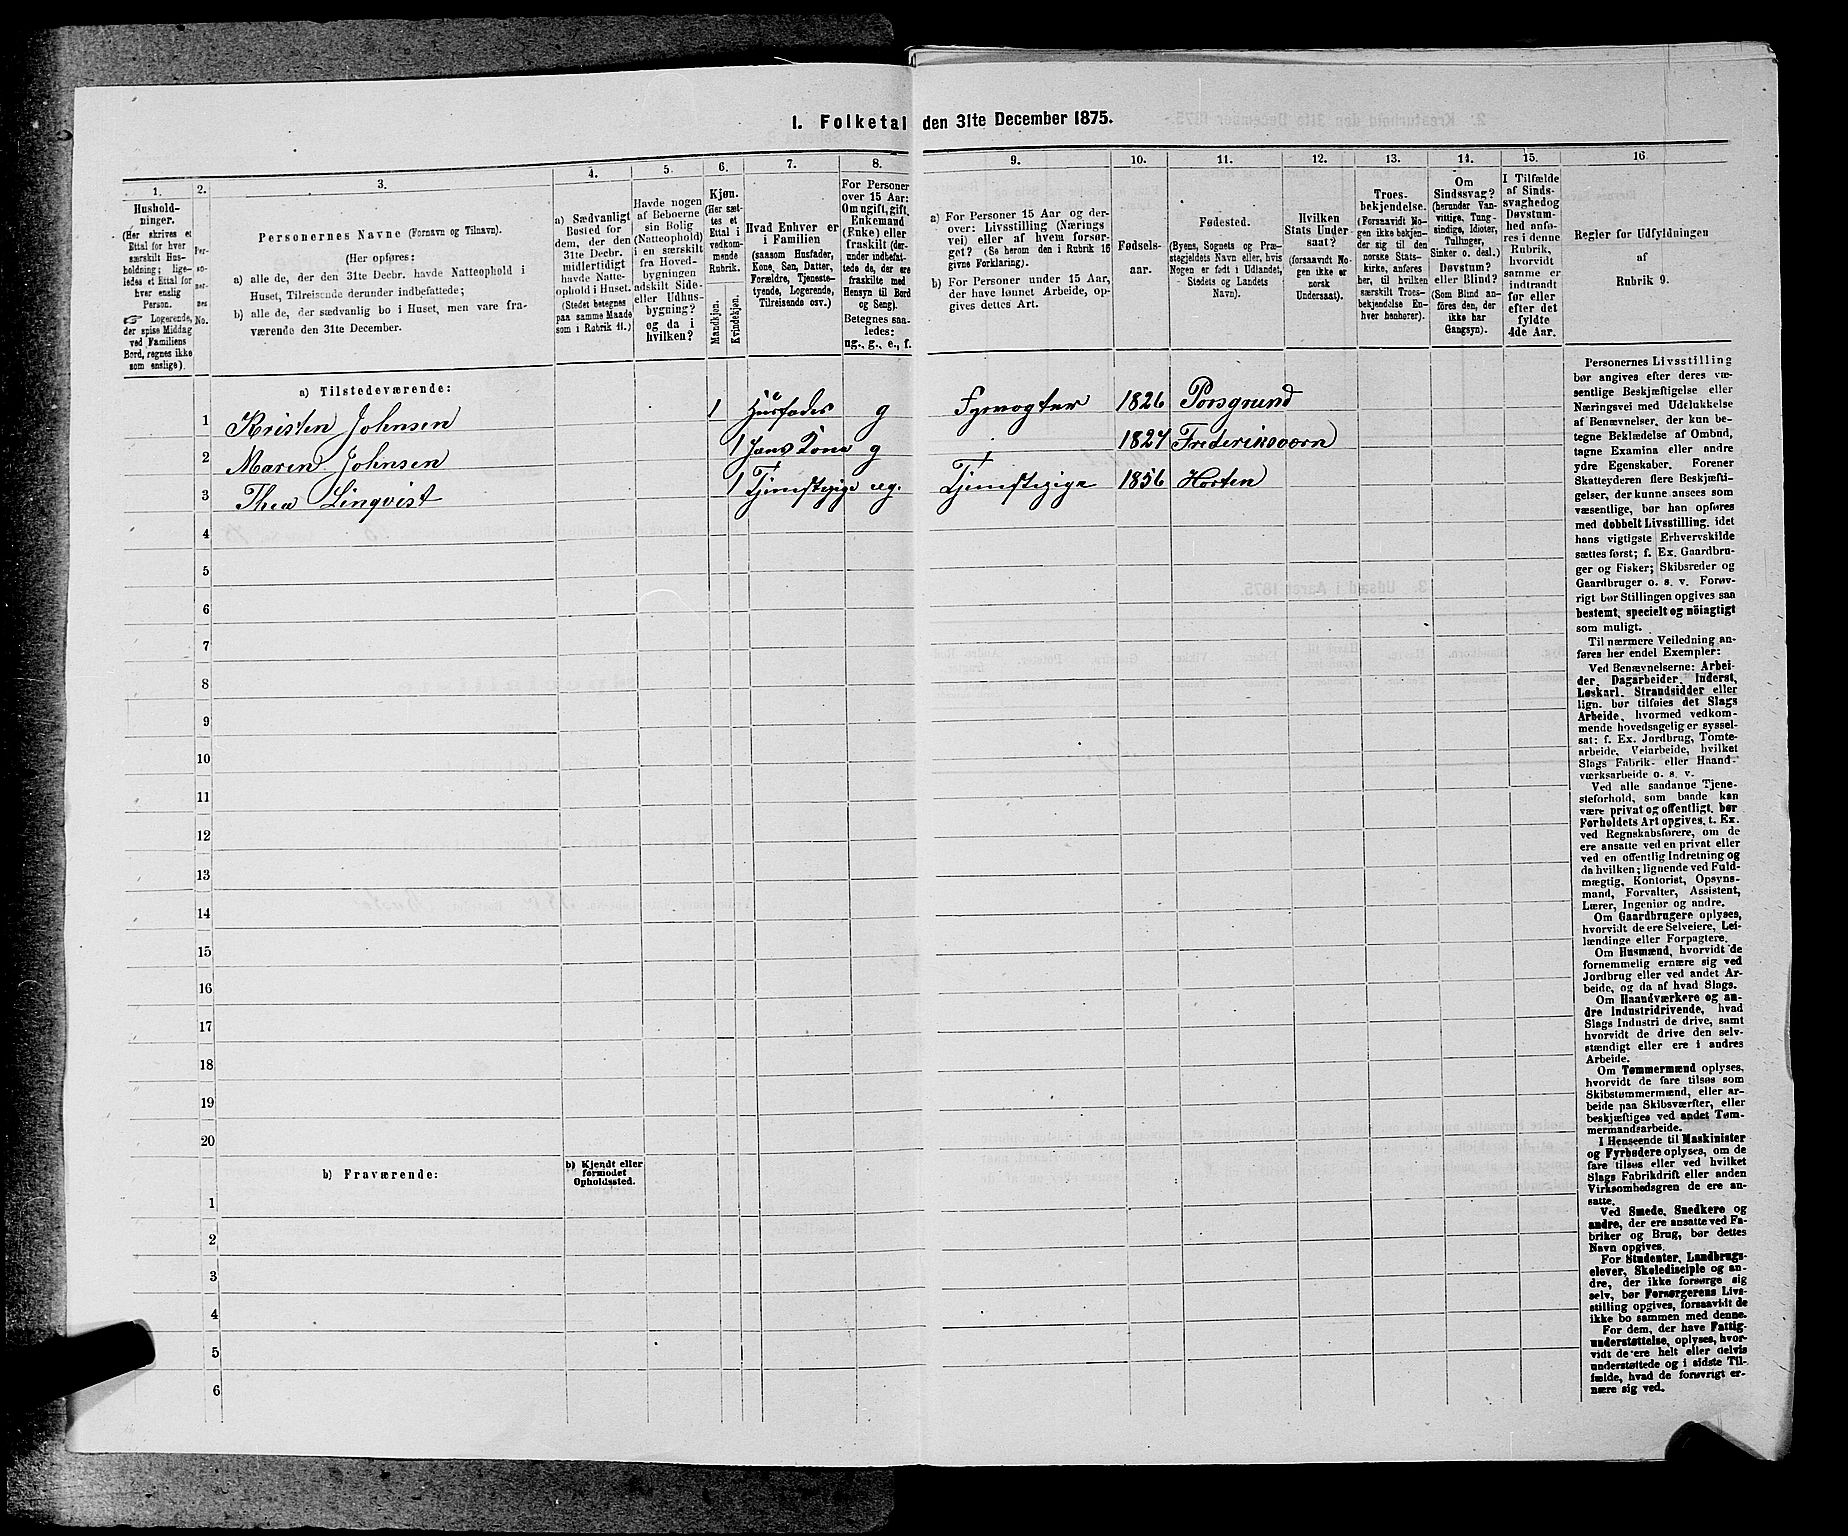 1. Folketal den 31te December 1875.
1.
Hushold-
ninger.
(Her skrives et
Ettal for hver
særskilt Hus-
holdning; lige-
ledes et Ettal for
hver enslig
Person.
☞ Logerende,
der spise Middag
ved Familiens
Bord, regnes ikke
som enslige).
2.
Per-
so-
ner-
nes
No.
3.
Personernes Navne (Fornavn og Tilnavn).
(Her opføres:
a) alle de, der den 31te Decbr. havde Natteophold i
Huset, Tilreisende derunder indbefattede;
b) alle de, der sædvanlig bo i Huset, men vare fra-
værende den 31te December.
4.
a) Sædvanligt
Bosted for
dem, der den
31te Decbr.
midlertidigt
havde Natte-
ophold i Huset.
(Stedet betegnes
paa samme Maade
som i Rubrik 11.)
5.
Havde nogen
af Beboerne
sin Bolig
(Natteophold)
i en særskilt
fra Hoved-
bygningen
adskilt Side-
eller Udhus-
bygning?
og da i
hvilken?
6.
Kjøn.
(Her sæt-
tes et
Ettal i
vedkom-
mende
Rubrik.
Mandkjøn.
Kvindekjøn.
7.
Hvad Enhver er
i Familien
(saasom Husfader,
Kone, Søn, Datter,
Forældre, Tjeneste-
tyende, Logerende,
Tilreisende osv.)
8.
For Personer
over 15 Aar:
Om ugift, gift,
Enkemand
(Enke) eller
fraskilt (der-
under indbefat-
tede de, der ere
fraskilte med
Hensyn til Bord
og Seng).
Betegnes saa-
ledes:
ug., g., e., f.
9.
a) For Personer 15 Aar og der-
over: Livsstilling (Nærings
vei) eller af hvem forsør-
get? (Se herom den i Rubrik 16
givne Forklaring).
b) For Personer under 15 Aar,
der have lønnet Arbeide, op-
gives dettes Art.
10.
Fødsels-
aar.
11.
Fødested.
(Byens, Sognets og Præ-
stegjeldets Navn eller, hvis
Nogen er født i Udlandet,
Stedets og Landets
Navn).
12.
Hvilken
Stats Under-
saat?
(forsaavidt No-
gen ikke er
norsk
Undersaat).
13.
Troes-
bekjendelse.
(Forsaavidt No-
gen ikke bekjen-
der sig til den
norske Stats-
kirke, anføres
her, til hvilken
særskilt Troes-
bekjendelse En-
hver henhører).
14.
Om
Sindssvag?
(herunder Van-
vittige, Tung-
sindige, Idioter,
Tullinger,
Sinker o. desl.)
Døvstum?
eller Blind?
(Som Blind an-
føres den, der
ikke har
Gangsyn).
15.
I Tilfælde
af Sinds-
svaghedog
Døvstum-
hed anfø-
res i denne
Rubrik,
hvorvidt
samme er
indtraadt
før eller
efter det
fyldte
4de Aar.
16
Regler for Udfyldningen
af
Rubrik 9.
a) Tilstedeværende:
1 Kristen Johnsen 1 Husfader g Fyrvogter 1826 Porsgrund
2 Maren Johnsen 1 Hans Kone g 1827 Frederiksværn
3 Thea Linqvist 1 Tjenstepige ug. Tjenstepige 1856 Horten
4
5
6
7
8
9
10
11
12
13
14
15
16
17
18
19
20
b) Fraværende:
b) Kjendt eller
formodet
Opholdssted.
1
2
3
4
5
6
Personernes Livsstilling
bør angives efter deres væ-
sentlige Beskjæftigelse eller
Næringsvei med Udelukkelse
af Benævnelser, der kun be-
tegne Beklædelse af Ombud,
tagne Examina eller andre
ydre Egenskaber. Forener
Skatteyderen flere Beskjæfti-
gelser, der kunne ansees som
væsentlige, bør han opføres
med dobbelt Livsstilling, idet
hans vigtigste Erhvervskilde
sættes først; f. Ex. Gaardbru-
ger og Fisker; Skibsreder og
Gaardbruger o. s. v. Forøv-
rigt bør Stillingen opgives saa
bestemt, specielt og nöiagtigt
som muligt.
Til nærmere Veiledning an-
føres her endel Exempler:
Ved Benævnelserne: Arbei-
der, Dagarbeider, Inderst,
Løskarl, Strandsidder eller
lign. bør tilføies det Slags
Arbeide, hvormed vedkom-
mende hovedsagelig er syssel-
sat; f. Ex. Jordbrug, Tomte-
arbeide, Veiarbeide, hvilket
Slags Fabrik- eller Haand-
værksarbeide o. s. v.
Ved alle saadanne Tjene-
steforhold, som baade kan
være privat og offentligt, bør
Forholdets Art opgives, t. Ex.
ved Regnskabsførere, om de
ere ansatte ved en privat eller
ved en offentlig Indretning og
da hvilken; lignende ved Fuld-
mægtig, Kontorist, Opsyns-
mand, Forvalter, Assistent,
Lærer, Ingeniør og andre.
Om Gaardbrugere oplyses,
hvorvidt de ere Selveiere, Lei-
lændinge eller Forpagtere.
Om Husmænd, hvorvidt de
fornemmelig ernære sig ved
Jordbrug eller ved andet Ar-
beide, og da af hvad Slags.
Om Haandværkere og an-
dre Industridrivende, hvad
Slags Industri de drive, samt
hvorvidt de drive den selv-
stændigt eller ere i andres
Arbeide.
Om Tømmermænd oplyses,
hvorvidt de fare tilsøs som
Skibstømmermænd, eller ar-
beide paa Skibsværfter, eller
beskjæftiges ved andet Tøm-
mermandsarbeide.
I Henseende til Maskinister
og Fyrbødere oplyses, om de
fare tilsøs eller ved hvilket
Slags Fabrikdrift eller anden
Virksomhedsgren de ere an-
satte.
Ved Smede, Snedkere og
andre, der ere ansatte ved Fa-
briker og Brug, bør dettes
Navn opgives.
For Studenter, Landbrugs-
elever, Skoledisciple og an-
dre, der ikke forsørge sig
selv, bør Forsørgerens Livs-
stilling opgives, forsaavidt de
ikke bo sammen med denne.
For dem, der have Fattig-
understøttelse, oplyses, hvor-
vidt de ere helt eller delvis
understøttede og i sidste Til-
fælde, hvad de forøvrigt er-
nære sig ved.